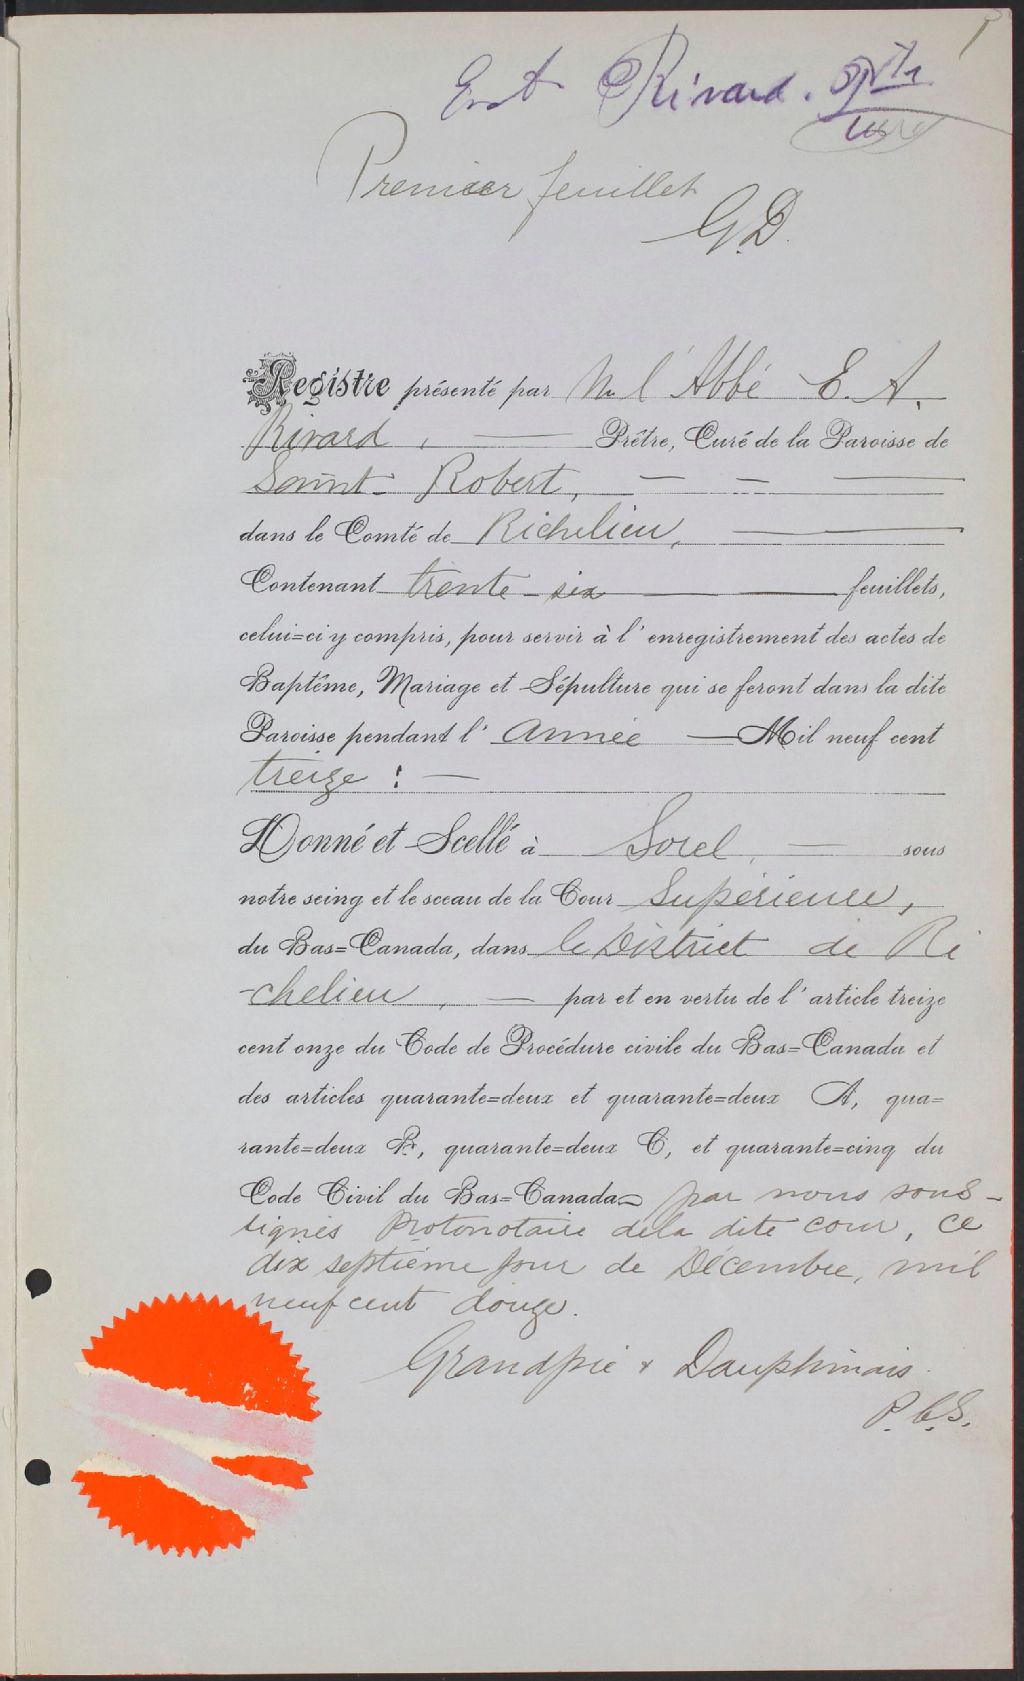 Rivard. Ptre
curé
Premier feuillet
G.D.
Registre présenté par Mr l'Abbé E. A.
Rivard, Prêtre, Curé de la Paroisse de
Saint-Robert,
dans le Comté de Richelieu,
Contenant trente-six feuillets,
celui=ci y compris, pour servir à l'enregistrement des actes de
Baptême, Mariage et Sépulture qui se feront dans la dite
Paroisse pendant l'année Mil neuf cent
treize :
Donné et Scellé à Sorel, sous
notre seing et le sceau de la Cour Supérieure,
du Bas=Canada, dans le District de Ri
-chelieu, par et en vertu de l'article treize
cent onze du Code de Procédure civile du Bas=Canada et
des articles quarante=deux et quarante=deux A, qua=
rante=deux B, quarante=deux C, et quarante=cinq du
Code Civil du Bas=Canada par nous sous-
signés Protonotaire de la dite cour, ce
dix septième jour de Décembre, mil
neuf cent douze.
Grandpré & Dauphinais
P.C.S.